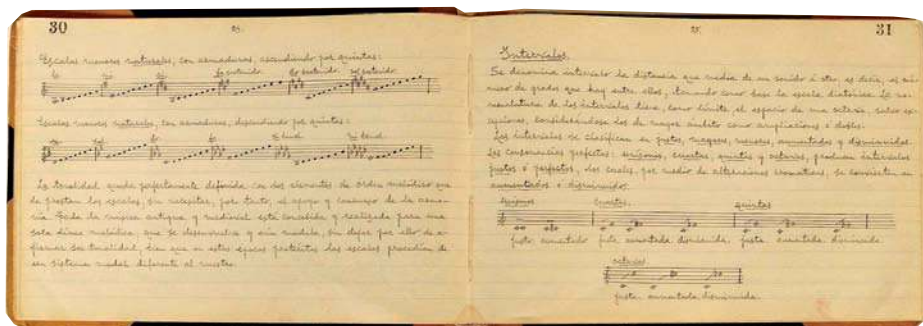 30
Escalas menores naturales, con armaduras, ascendiendo por quintas:
la mi si fa sostenido do sostenido sol sostenido
Escalas menores naturales, con armaduras, descendiendo por quintas:
La tonalidad queda perfectamente definida con dos elementos de orden melódico que
le prestan las escalas, sin necesitar, por tanto, el apoyo y concurso de la armo-
nía. Toda la música antigua y medieval está concebida y realizada para una
sola línea melódica, que se desenvuelve y aún modula, sin dejar por ello de a-
firmar su tonalidad, bien que en estas épocas pretéritas las escalas procedían de
un sistema modal diferente al nuestro.
31
Intervalos.
Se denomina intervalo la distancia que media de un sonido á otro, es decir, el nú-
mero de grados que hay entre ellos, tomando como base la escala diatónica. La no-
menclatura de los intervalos tiene, como límite, el espacio de una octava, salvo ex-
cepciones, considerándose los de mayor ámbito como ampliaciones ó dobles.
Los intervalos se clasifican en justos, mayores, menores, aumentados y disminuidos.
Las consonancias perfectas: unísonos, cuartas, quintas y octavas, producen intervalos
justos ó perfectos, los cuales, por medio de alteraciones cromáticas, se convierten en
aumentados ó disminuidos.
Unísonos Cuartas. Quintas
justo aumentado justa aumentada disminuida. justa aumentada disminuida
octavas
justa. aumentada disminuida.